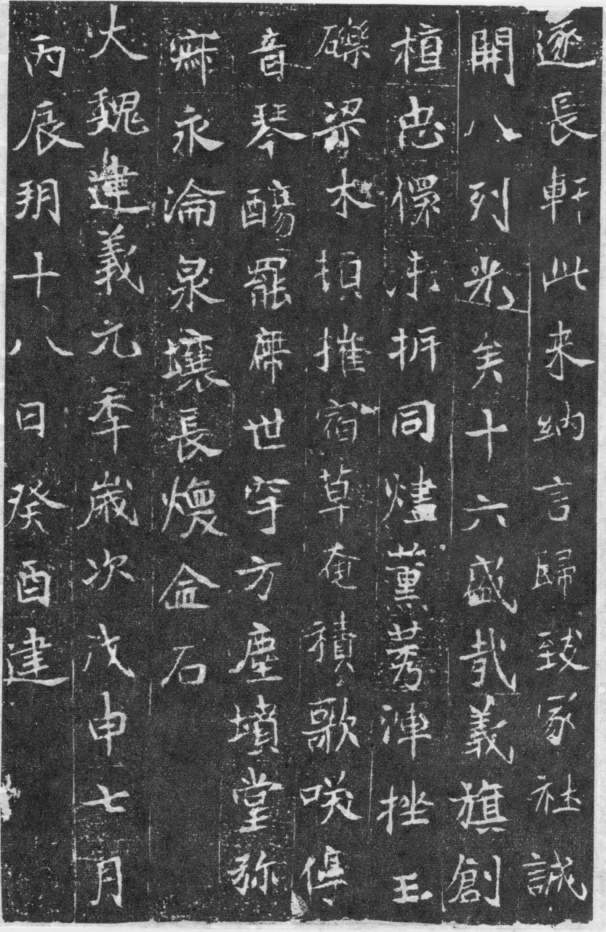 遂長軒此来納言歸致冢社誠
開八列光矣十六盛哉義旗創
植忠儇未折同燼薰莠渾挫玉
礫梁木摧宿草奄積歌咲停
音琴醻罷席世穸方塵墳堂弥
寐永淪泉壤長煥金石
大魏建義元年歲次戊申七月
丙辰朔十八日癸酉建